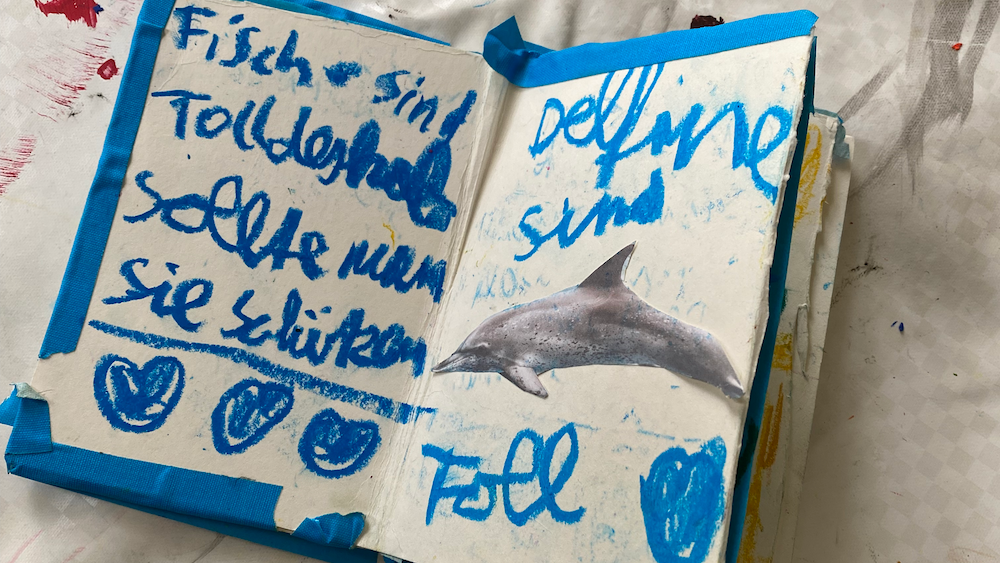 Fische sind
Toll deshalb
Sollte man
Sie Schützen
Delfine
sind
Toll